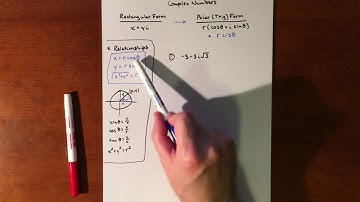 Complex Numbers
Rectangular Form
x + yi
Polar (Trig) Form
r(cosθ + i sinθ)
= r cisθ
* Relationships
x = r cosθ
y = r sin
√x²+y² = r
(x,y)
sinθ = y/r
cosθ = x/r
tanθ = y/x
x² + y² = r²
① -3 - 3i√3